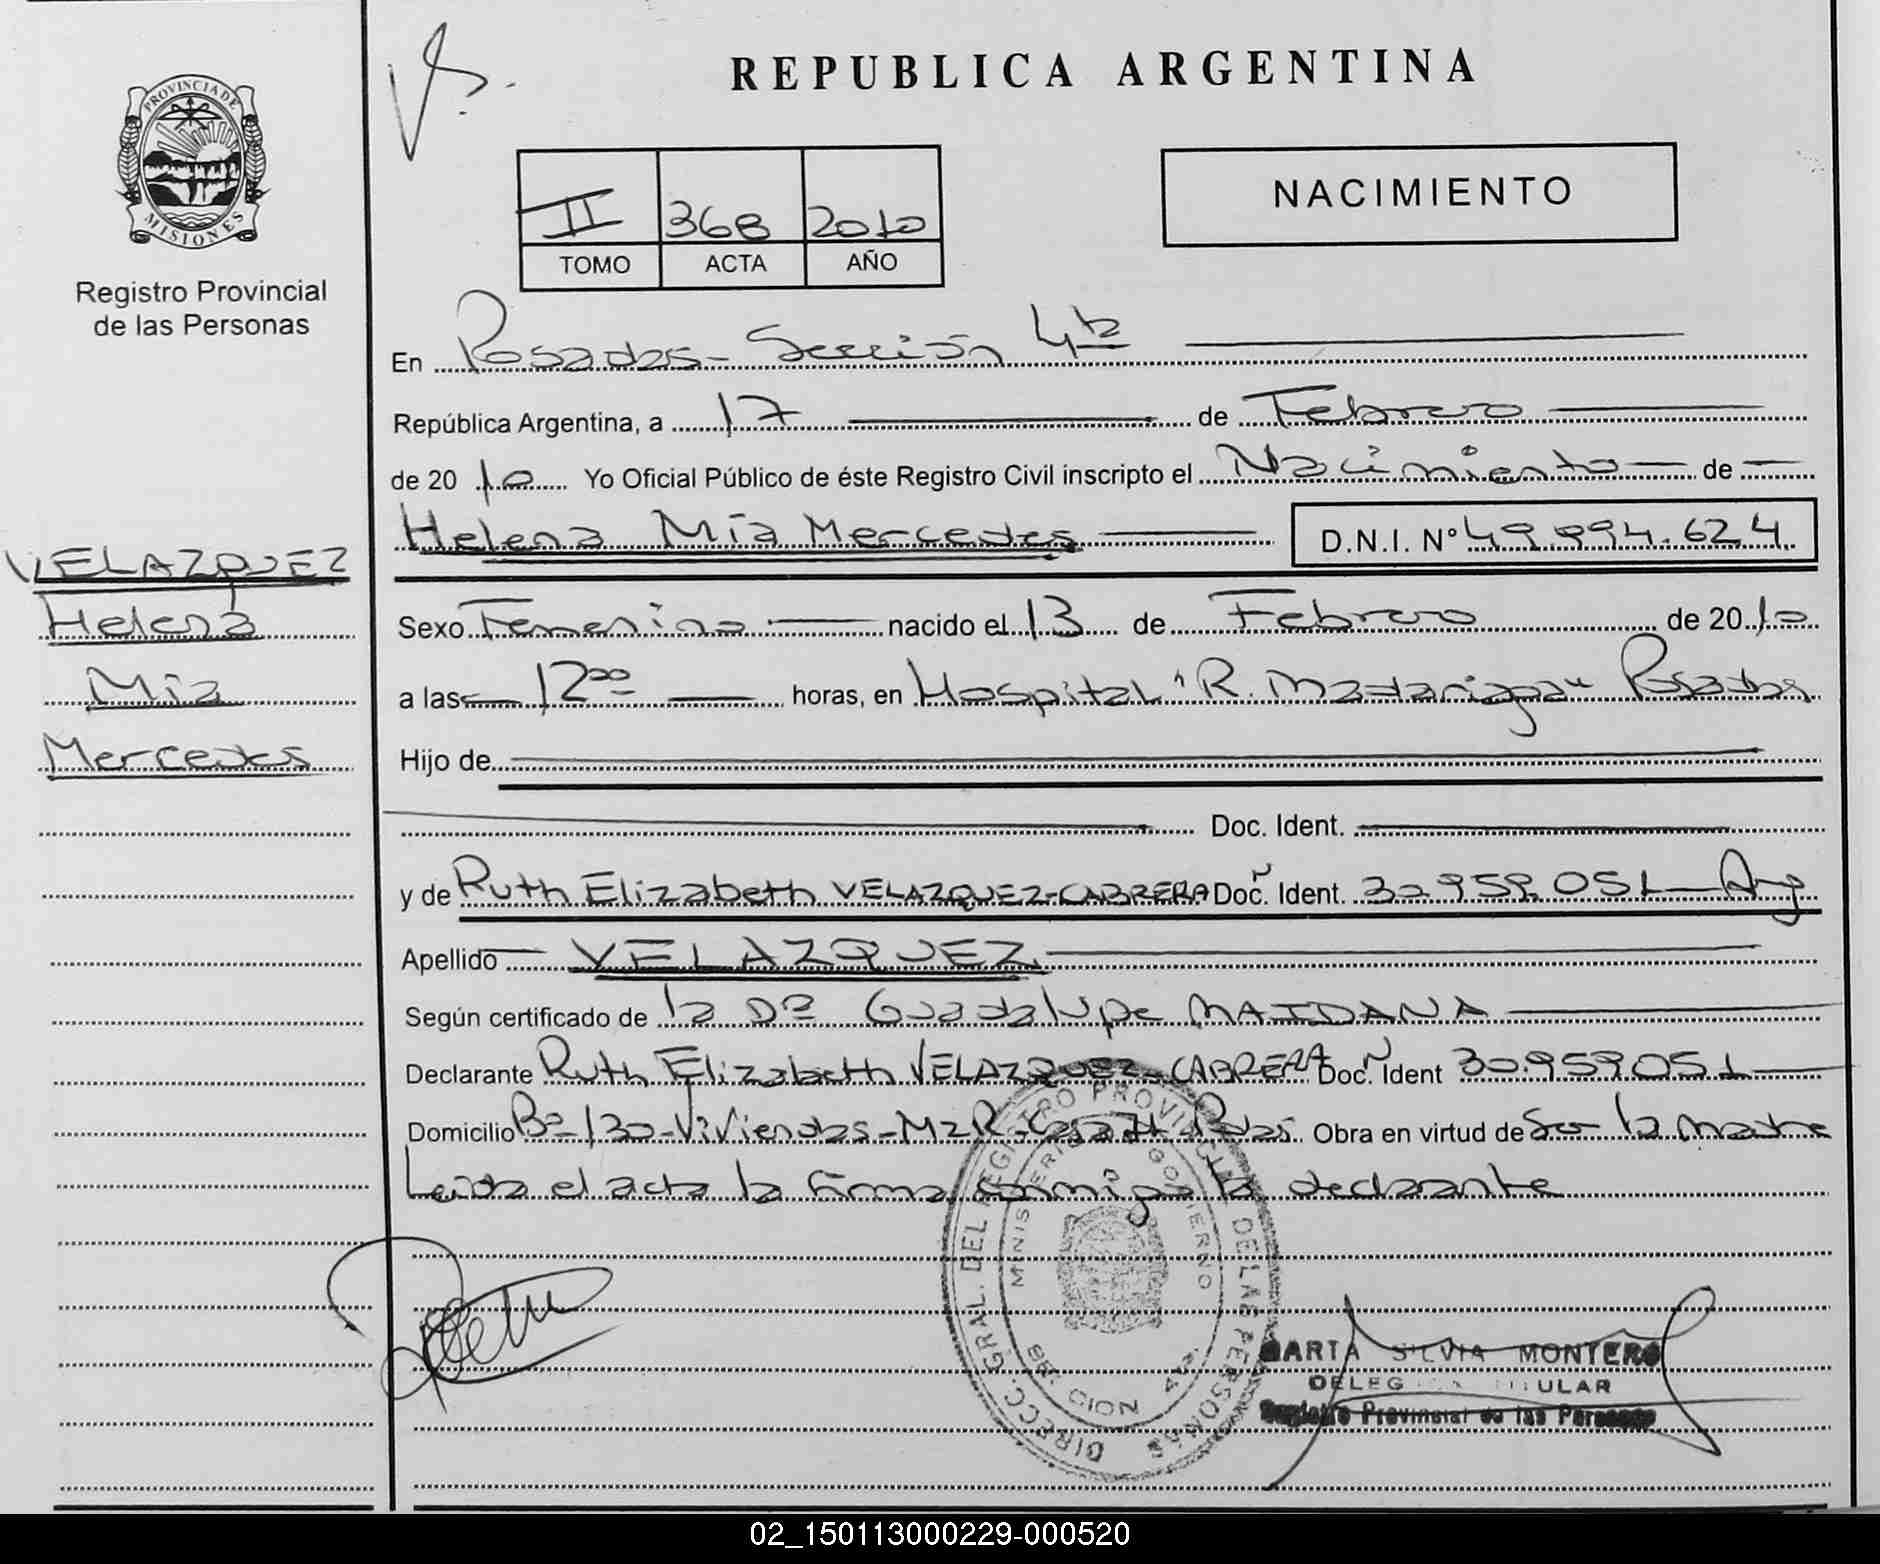 REPUBLICA ARGENTINA
PROVINCIA DE
MISIONES
Registro Provincial
de las Personas
II 368 2010
TOMO ACTA AÑO
NACIMIENTO
En Posadas - Sección 4ta
República Argentina, a 17 de Febrero
de 2010 Yo Oficial Público de éste Registro Civil inscripto el Nacimiento de
Helena Mía Mercedes D.N.I. N° 49.994.624
VELAZQUEZ
Helena
Mía
Mercedes
Sexo Femenino nacido el 13 de Febrero de 2010
a las 12 00 horas, en Hospital "R. Madariaga" Posadas
Hijo de
Doc. Ident.
y de Ruth Elizabeth VELAZQUEZ-CABRERA Doc. Ident. 30.959.051 Arg
Apellido VELAZQUEZ
Según certificado de la Dra Guadalupe MAIDANA
Declarante Ruth Elizabeth VELAZQUEZ-CABRERA Doc. Ident 30.959.051
Domicilio Bº 130 Viviendas - Mz R - Casa Pdas. Obra en virtud de Ser la madre
Leida el acta la firma conmigo la declarante
DIRECC. GRAL. DEL REGISTRO PROVINCIAL DE LAS PERSONAS
MINISTERIO GOBIERNO
MARTA SILVIA MONTERO
TITULAR
Registro Provincial de las Personas
02_150113000229-000520